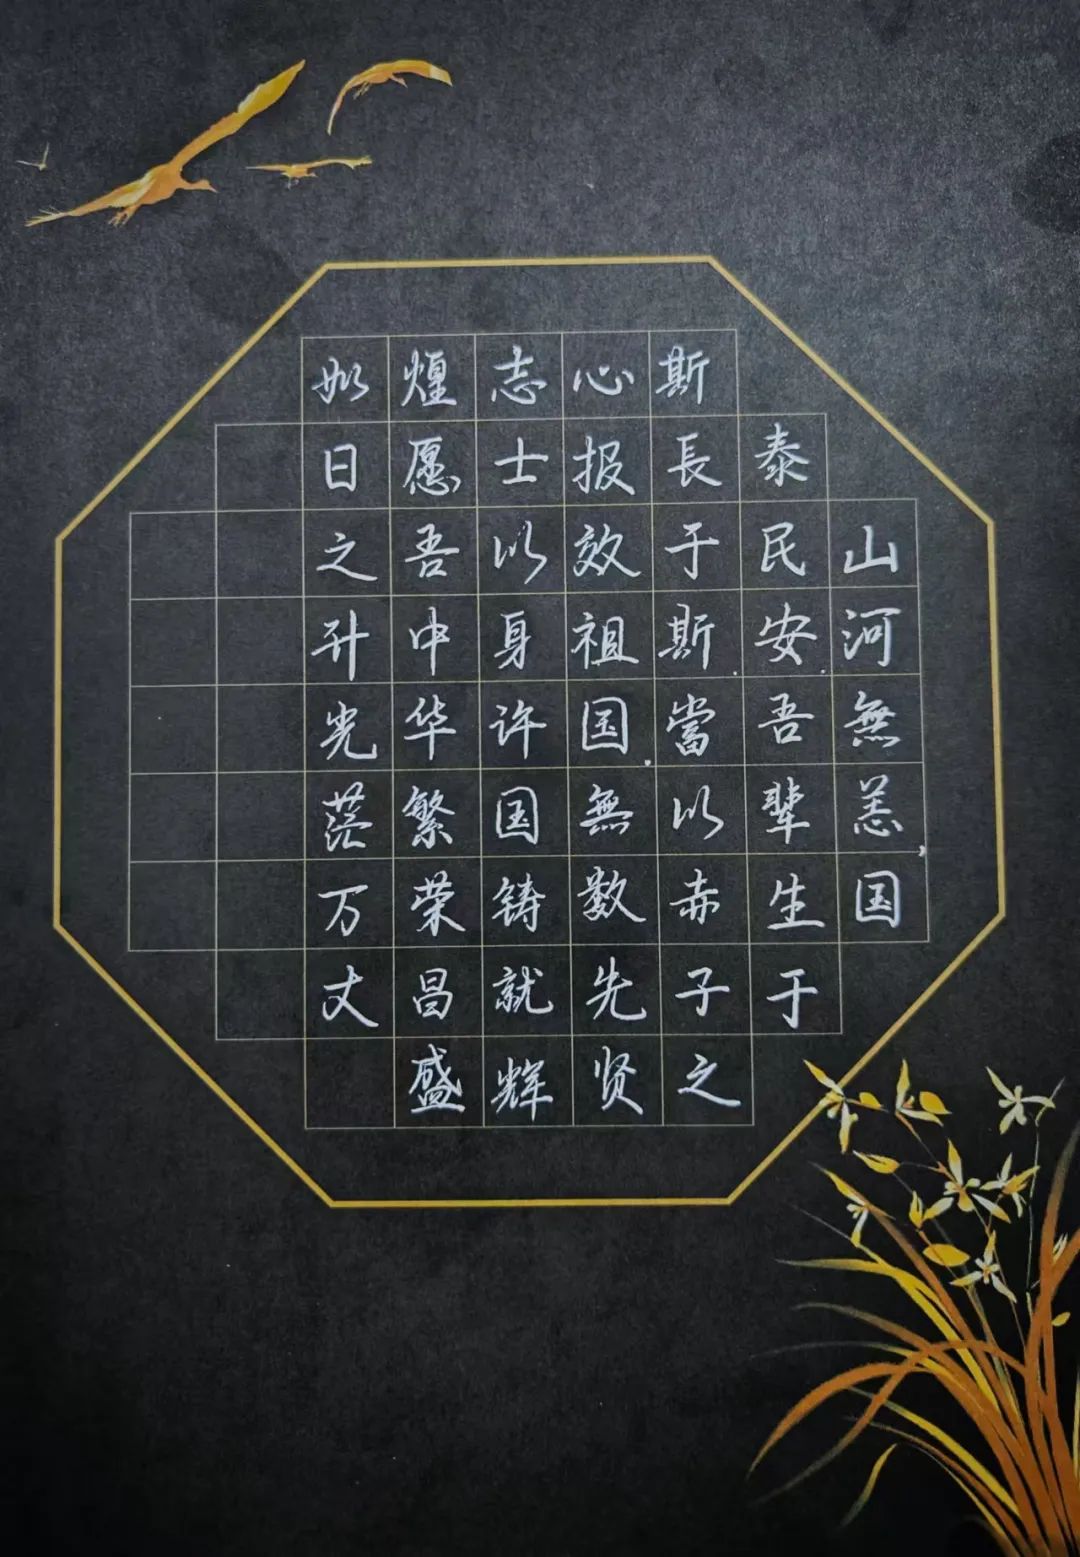 山河無恙，国
泰民安.吾辈生于
斯長于斯.當以赤子之
心报效祖国.無数先贤
志士以身许国铸就辉
煌愿吾中华繁荣昌盛
如日之升光茫万丈